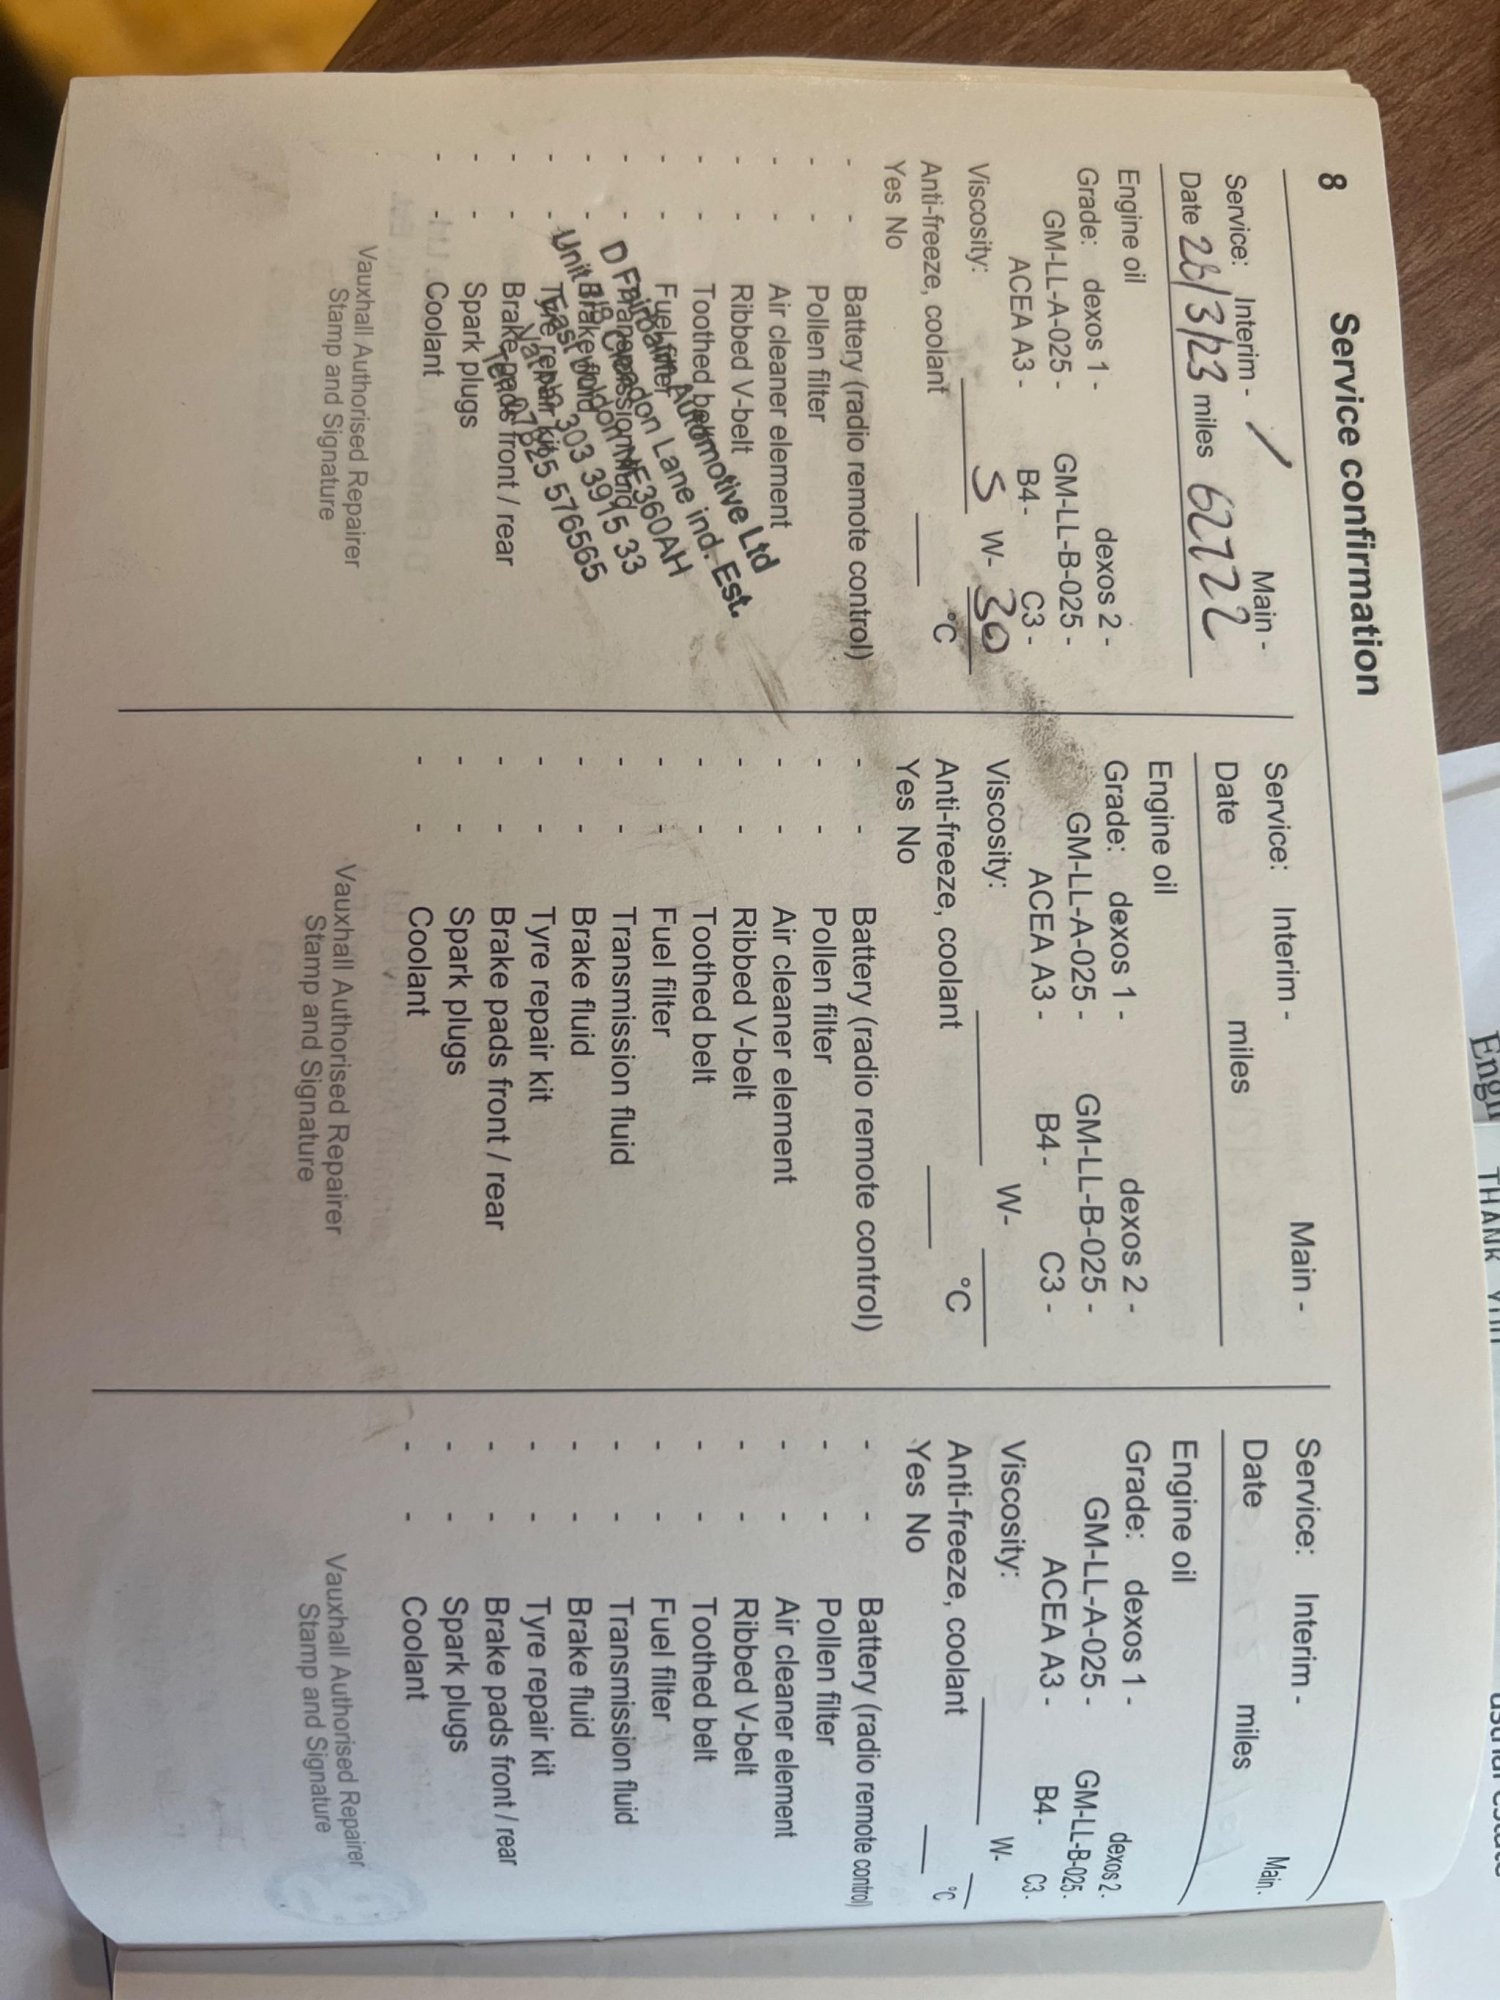 8 Service confirmation
Service: Interim - / Main -
Date 28/3/23 miles 62722
Engine oil
Grade: dexos 1 - dexos 2 -
GM-LL-A-025 - GM-LL-B-025 -
ACEA A3 - B4- C3 -
Viscosity: 5 W- 30
Anti-freeze, coolant °C
Yes No
- - Battery (radio remote control)
- - Pollen filter
- - Air cleaner element
- - Ribbed V-belt
- - Toothed belt
- - Fuel filter
- - Transmission fluid
- - Brake fluid
- - Tyre repair kit
- - Brake pads front / rear
- - Spark plugs
- - Coolant
D Fairbairn Automotive Ltd
Lane ind. Est.
NE360AH
303 3915 33
07825 576565
Vauxhall Authorised Repairer
Stamp and Signature
Service: Interim - Main -
Date miles
Engine oil
Grade: dexos 1 - dexos 2 -
GM-LL-A-025 - GM-LL-B-025 -
ACEA A3 - B4- C3 -
Viscosity: W-
Anti-freeze, coolant °C
Yes No
- - Battery (radio remote control)
- - Pollen filter
- - Air cleaner element
- - Ribbed V-belt
- - Toothed belt
- - Fuel filter
- - Transmission fluid
- - Brake fluid
- - Tyre repair kit
- - Brake pads front / rear
- - Spark plugs
- - Coolant
Vauxhall Authorised Repairer
Stamp and Signature
Service: Interim - Main -
Date miles
Engine oil
Grade: dexos 1 - dexos 2 -
GM-LL-A-025 - GM-LL-B-025 -
ACEA A3 - B4- C3 -
Viscosity: W-
Anti-freeze, coolant °C
Yes No
- - Battery (radio remote control)
- - Pollen filter
- - Air cleaner element
- - Ribbed V-belt
- - Toothed belt
- - Fuel filter
- - Transmission fluid
- - Brake fluid
- - Tyre repair kit
- - Brake pads front / rear
- - Spark plugs
- - Coolant
Vauxhall Authorised Repairer
Stamp and Signature
THANK